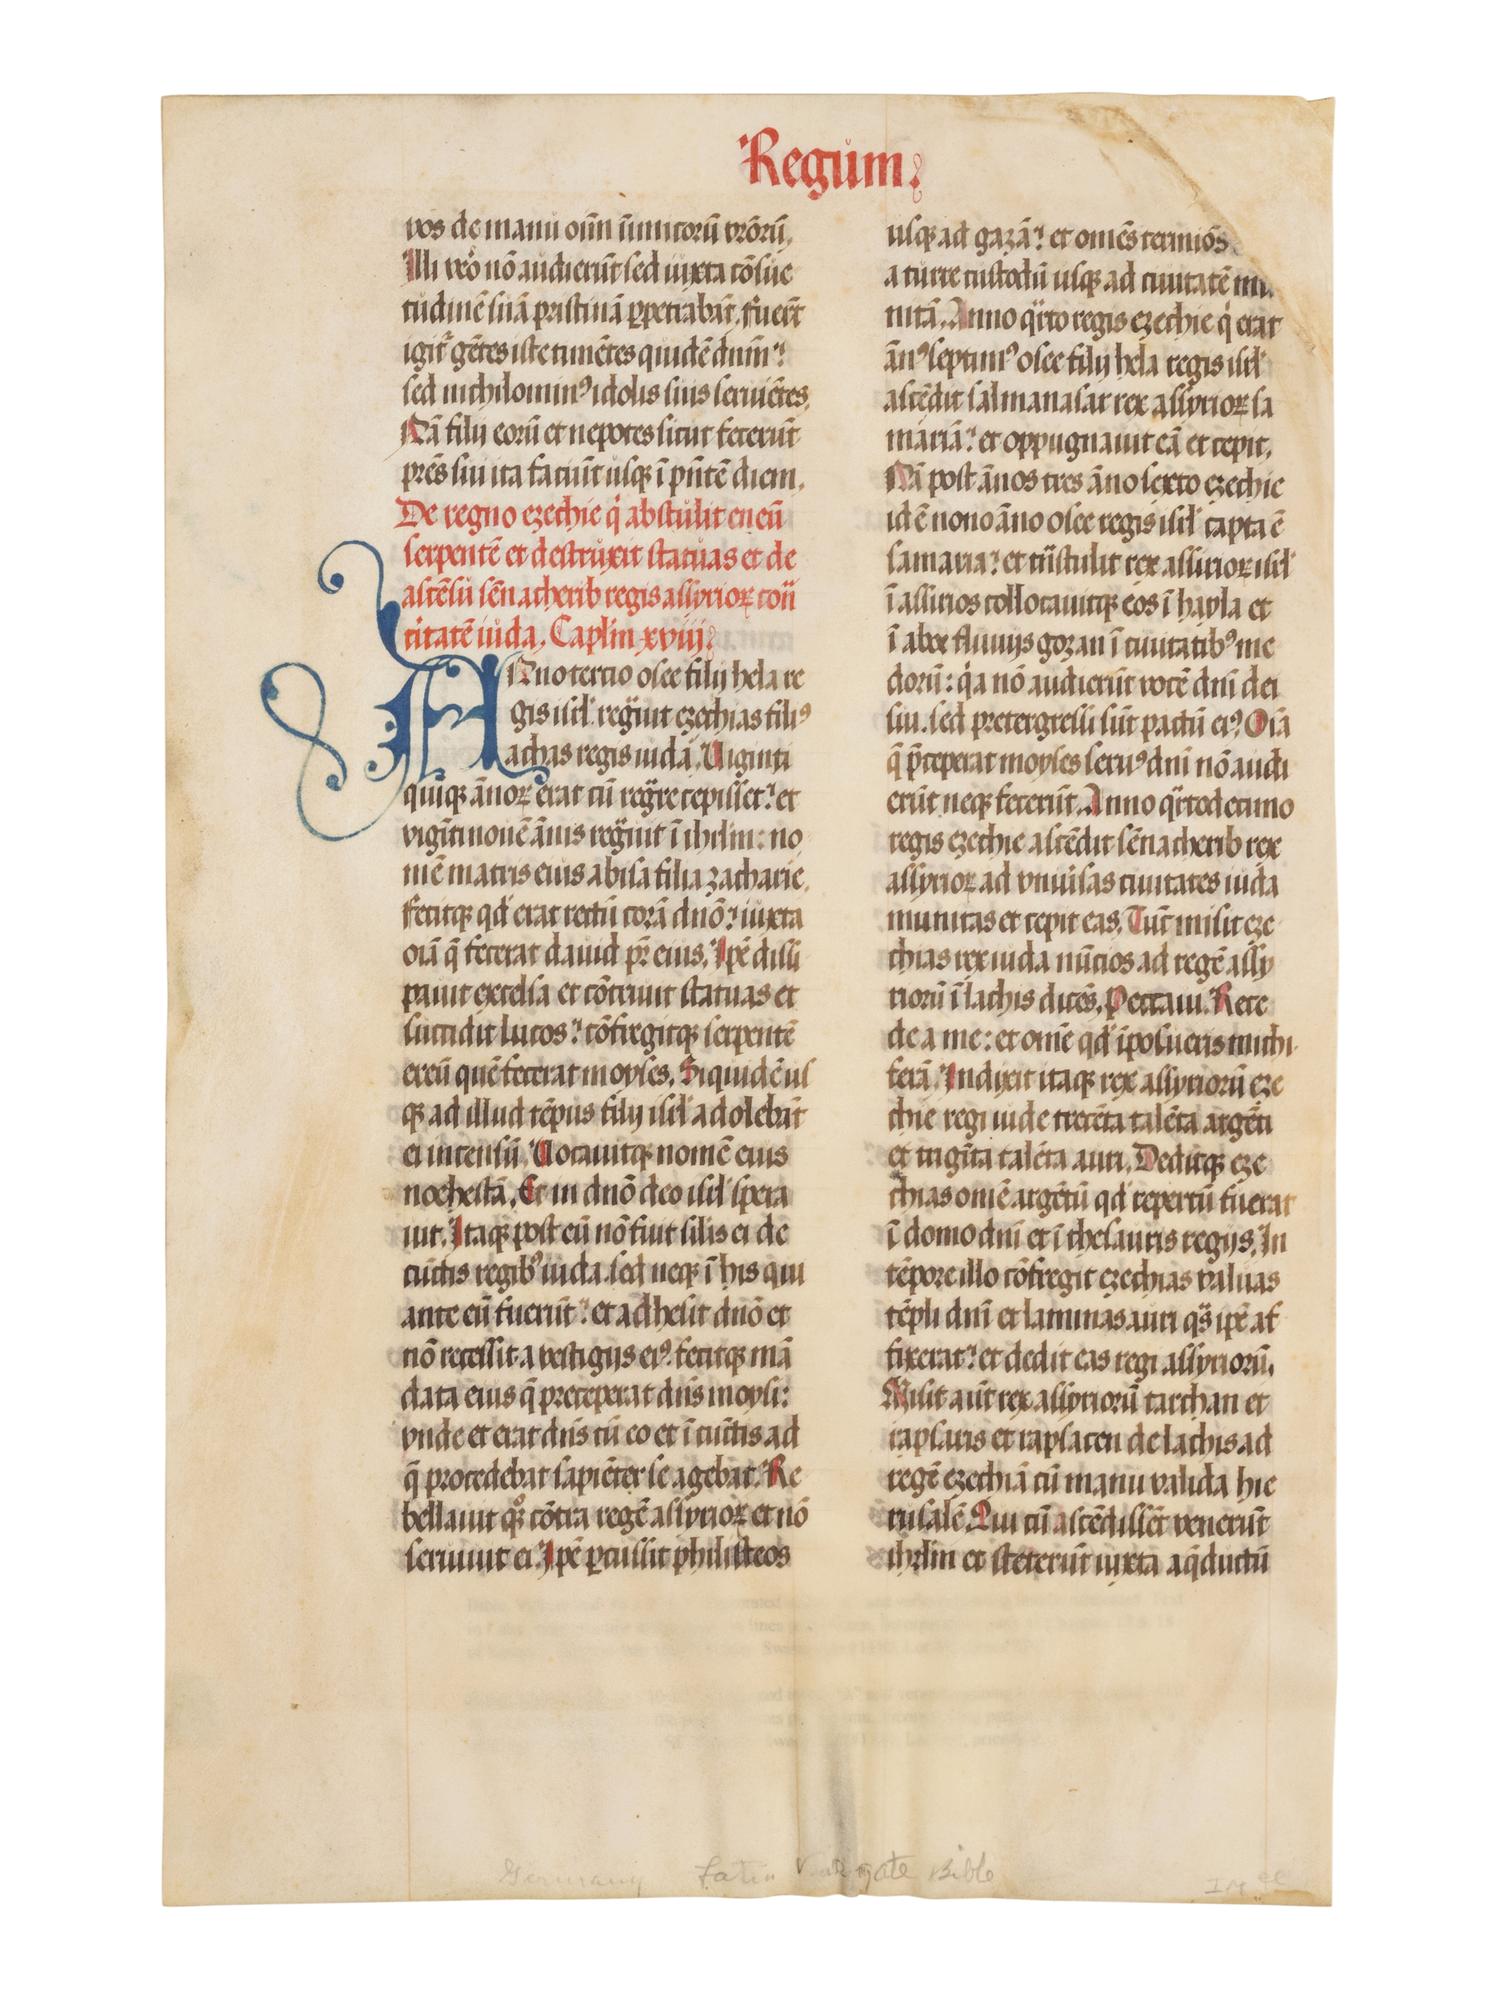 Regum.
vos de manu oīm īimicorū vrōrū.
Illi vrō nō audierūt sed iuxta cōsue
tudinē suā pristinā ꝑpetrabāt. fuerūt
igit᷑ gētes iste timētes quidē dnm̄:
sed nichilominꝰ idolis suis seruiētes.
Nā filij eorū et nepotes sicut fecerūt
pr̄es sui ita faciūt usqꝫ ī pn̄tē diem.
De regno ezechie qͥ abstulit eneū
serpentē et destruxit statuas et de
ascēsu sēnacherib regis assyrioꝝ cont̄
ciitatē iuda. Caplm̄ xviij.
ANno tercio osee filij hela re
gis isrl̄ reg̈uit ezechias filiꝰ
achas regis iuda. Uiginti
quiqꝫ ānoꝝ erat cū reg̈re cepisset: et
vigīti nouē ānis reg̈uit ī ihrlm̄: no
mē matris eius abisa filia zacharie.
Fecitqꝫ qd̓ erat rectū corā dn̄o: iuxta
oīa q̄ fecerat dauid pr̄ eius. Ip̄e dissi
pauit excelsa et cōtriuit statuas et
succidit lucos: cōfregitqꝫ serpentē
ereū quē fecerat moyses. Siquidē us
qꝫ ad illud tēpus filij isrl̄ adolebāt
ei incensū. Uocauitqꝫ nomē eius
noehestā. Et in dn̄o deo isrl̄ spera
uit. Itaqꝫ post eū nō fuit silis ei de
cūctis regibꝰ iuda. sed neqꝫ ī his qui
ante eū fuerūt: et adhesit dn̄o et
nō recessit a vestigijs eiꝰ. fecitqꝫ mā
data eius q̄ preceperat dn̄s moysi:
vnde et erat dn̄s cū eo et ī cūctis ad
q̄ procedebat sapiēter se agebat. Re
bellauit qͦqꝫ cōtra regē assyrioꝝ et nō
seruiuit ei. Ip̄e ꝑcussit philisteos
usqꝫ ad gazā: et omēs termiōs
a turre custodū usqꝫ ad ciuitatē mu
nitā. Anno qͣrto regis ezechie qͥ erat
ānꝰ septimꝰ osee filij hela regis isrl̄
ascēdit salmanasar rex assyrioꝝ sa
mariā: et oppugnauit eā et cepit.
Nā post ānos tres āno sexto ezechie
id ē nono āno osee regis isrl̄ capta ē
samaria: et trāstulit rex assirioꝝ isrl̄
ī assirios collocauitqꝫ eos ī hayla et
ī abor fluuijs gozan ī ciuitatibꝰ me
dorū: qͥa nō audierūt vocē dn̄i dei
sui. sed pretergressi sūt pactū eiꝰ. Oīa
q̄ p̄ceperat moyses seruꝰ dn̄i nō audi
erūt neqꝫ fecerūt. Anno qͣrtodecimo
regis ezechie ascēdit sēnacherib rex
assyrioꝝ ad vniuīsas ciuitates iuda
munitas et cepit eas. Tūc misit eze
chias rex iuda nūcios ad regē assy
riorū ī lachis dicēs. Peccaui. Rece
de a me: et omē qd̓ īposueris michi
ferā. Indixit itaqꝫ rex assyriorū eze
chie regi iude trecēta talēta argēti
et trigīta talēta auri. Deditqꝫ eze
chias omē argētū qd̓ repertū fuerat
ī domo dn̄i et ī thesauris regijs. In
tēpore illo cōfregit ezechias valuas
tēpli dn̄i et laminas auri qͣs ip̄e af
fixerat: et dedit eas regi assyriorū.
Misit aūt rex assyriorū tarchan et
rapsaris et rapsacen de lachis ad
regē ezechiā cū manu valida hie
rusalē. Qui cū ascēdissēt venerūt
ihrlm̄ et steterūt iuxta aq̄ductū
Germany Latin Vulgate Bible